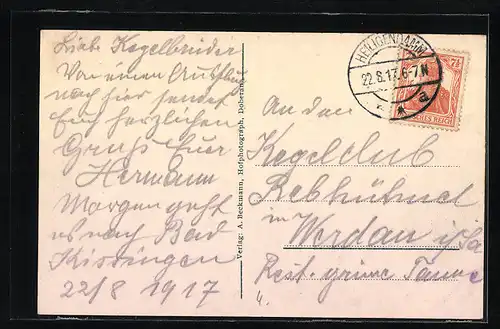 Liebe Kegelbrüder
Von einem Ausflug
nach hier sendet
Euch herzlichen
Gruss Euer
Hermann
Morgen geht
es nach Bad
Kissingen
22/8 1917
Verlag: A. Beckmann, Hofphotograph, Doberan
HEILIGENDAMM
22.8.17.6-7N
* * a
7½
DEUTSCHES REICH
An den
Kegelclub
Rebhühnel
in Werdau i/Sa
Rest. grüne Tanne